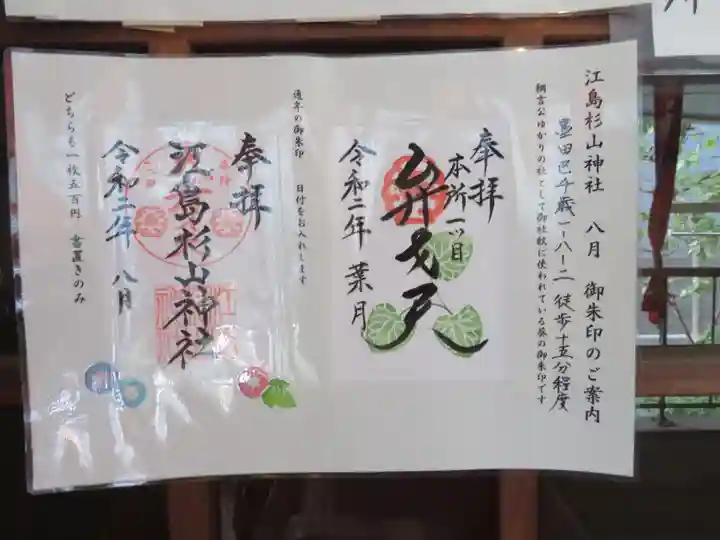 江島杉山神社 八月 御朱印のご案内
墨田区千歳一ー八ー二 徒歩十五分程度
綱吉公ゆかりの社として御社紋に使われている葵の御朱印です
奉拝
本所一ツ目
弁才天
令和二年 葉月
通年の御朱印 日付をお入れします
奉拝
江島杉山神社
令和二年 八月
どちらも一枚五百円 書置きのみ